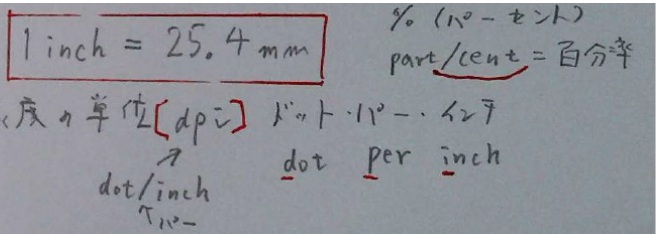 1 inch = 25.4 mm
% (パーセント)
part/cent = 百分率
度の単位[dpi] ドット・パー・インチ
dot per inch
dot/inch
↑パー